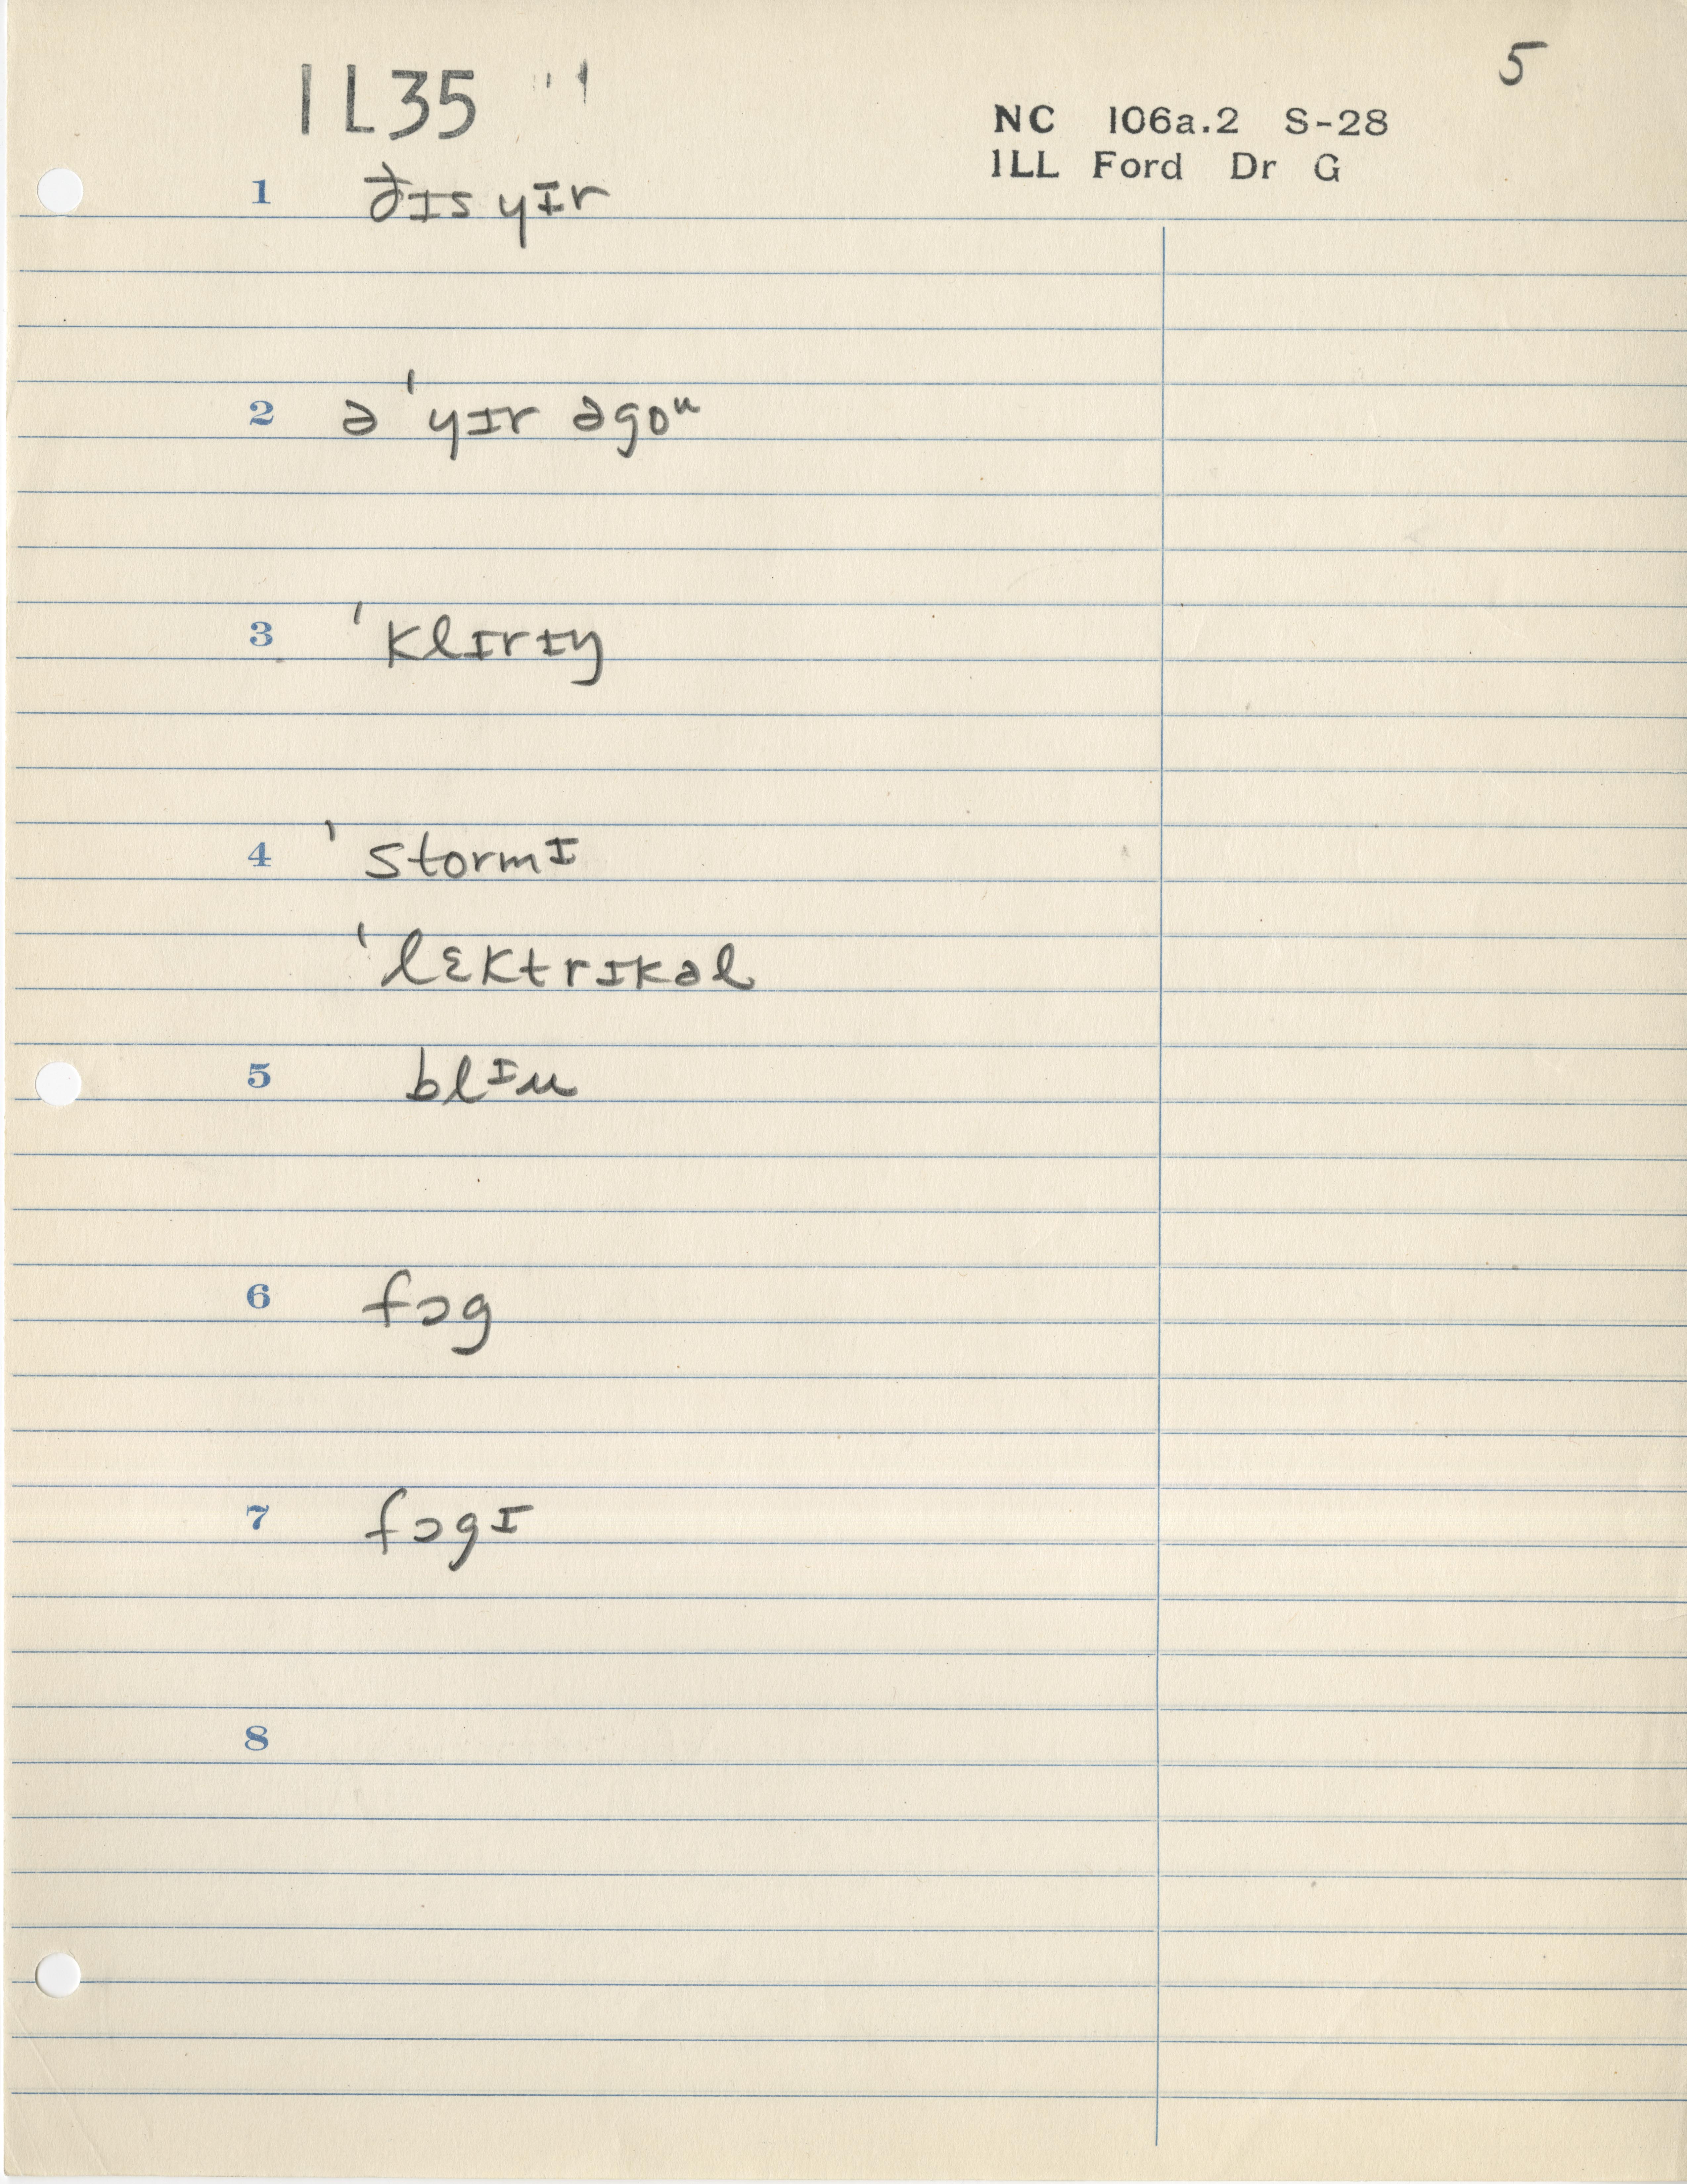 5
IL35
NC 106a.2 S-28
ILL Ford Dr G
1 ðɪs yɪr
2 ə ˈyɪr əgoᵘ
3 ˈklɪrɪŋ
4 ˈstormɪ
ˈlɛktrɪkəl
5 blɪu
6 fɔg
7 fɔgɪ
8